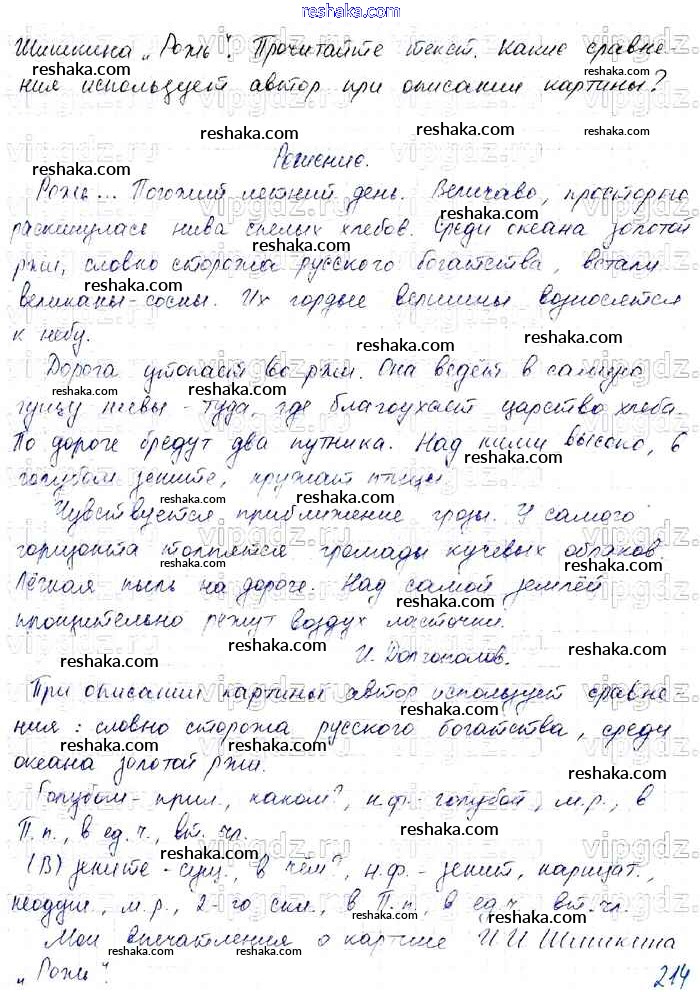 reshaka.com
Шишкина „Рожь". Прочитайте текст. Какие сравне-
ния использует автор при описании картины?
Решение.
Рожь... Погожий летний день. Величаво, просторно
раскинулась нива спелых хлебов. Среди океана золотой
ржи, словно сторожа русского богатства, встали
великаны-сосны. Их гордые вершины возносятся
к небу.
Дорога утопает во ржи. Она ведёт в самую
гущу нивы - туда, где благоухает царство хлеба.
По дороге бредут два путника. Над ними высоко, в
голубом зените, кружат птицы.
Чувствуется приближение грозы. У самого
горизонта толпятся громады кучевых облаков.
Лёгкая пыль на дороге. Над самой землёй
пронзительно режут воздух ласточки.
И. Долгополов.
При описании картины автор использует сравне-
ния: словно сторожа русского богатства, среди
океана золотой ржи.
Голубом - прил., каком?, н.ф. - голубой, м.р., в
П.п., в ед.ч., вт. чл.
(В) зените - сущ., в чём?, н.ф. - зенит, нарицат.,
неодуш., м.р., 2-го скл., в П.п., в ед.ч. вт. чл.
Мои впечатления о картине И И Шишкина
„Рожь".
214